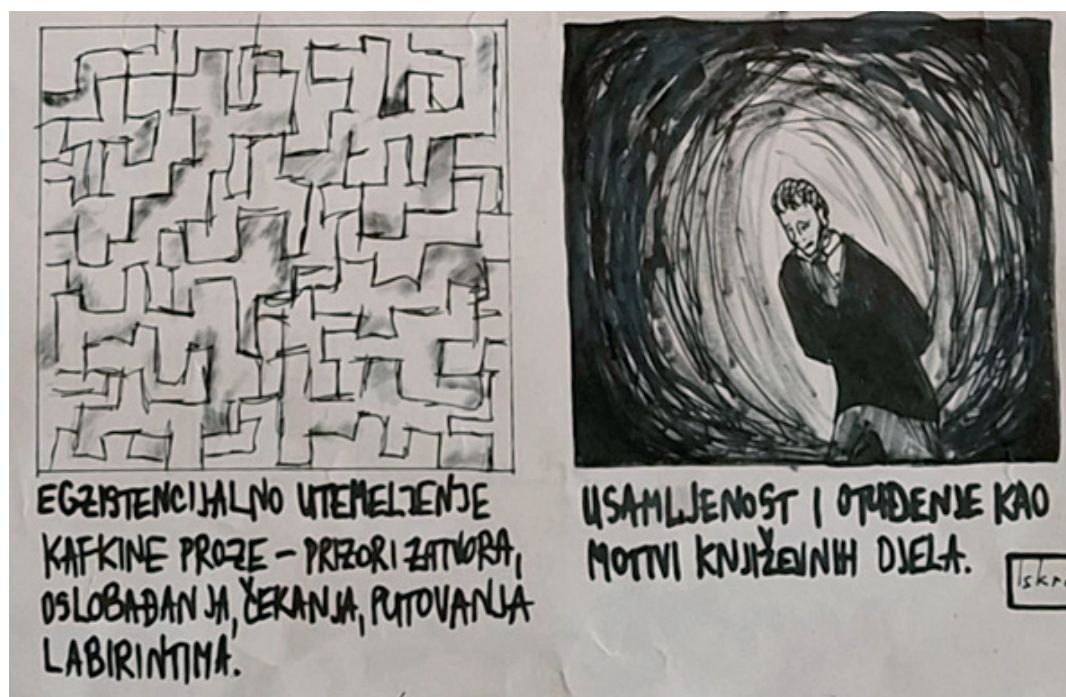 EGZISTENCIJALNO UTEMELJENJE
KAFKINE PROZE – PRIZORI ZATVORA,
OSLOBAĐANJA, ČEKANJA, PUTOVANJA
LABIRINTIMA.
USAMLJENOST I OTUĐENJE KAO
MOTIVI KNJIŽEVNIH DJELA.
Iskra